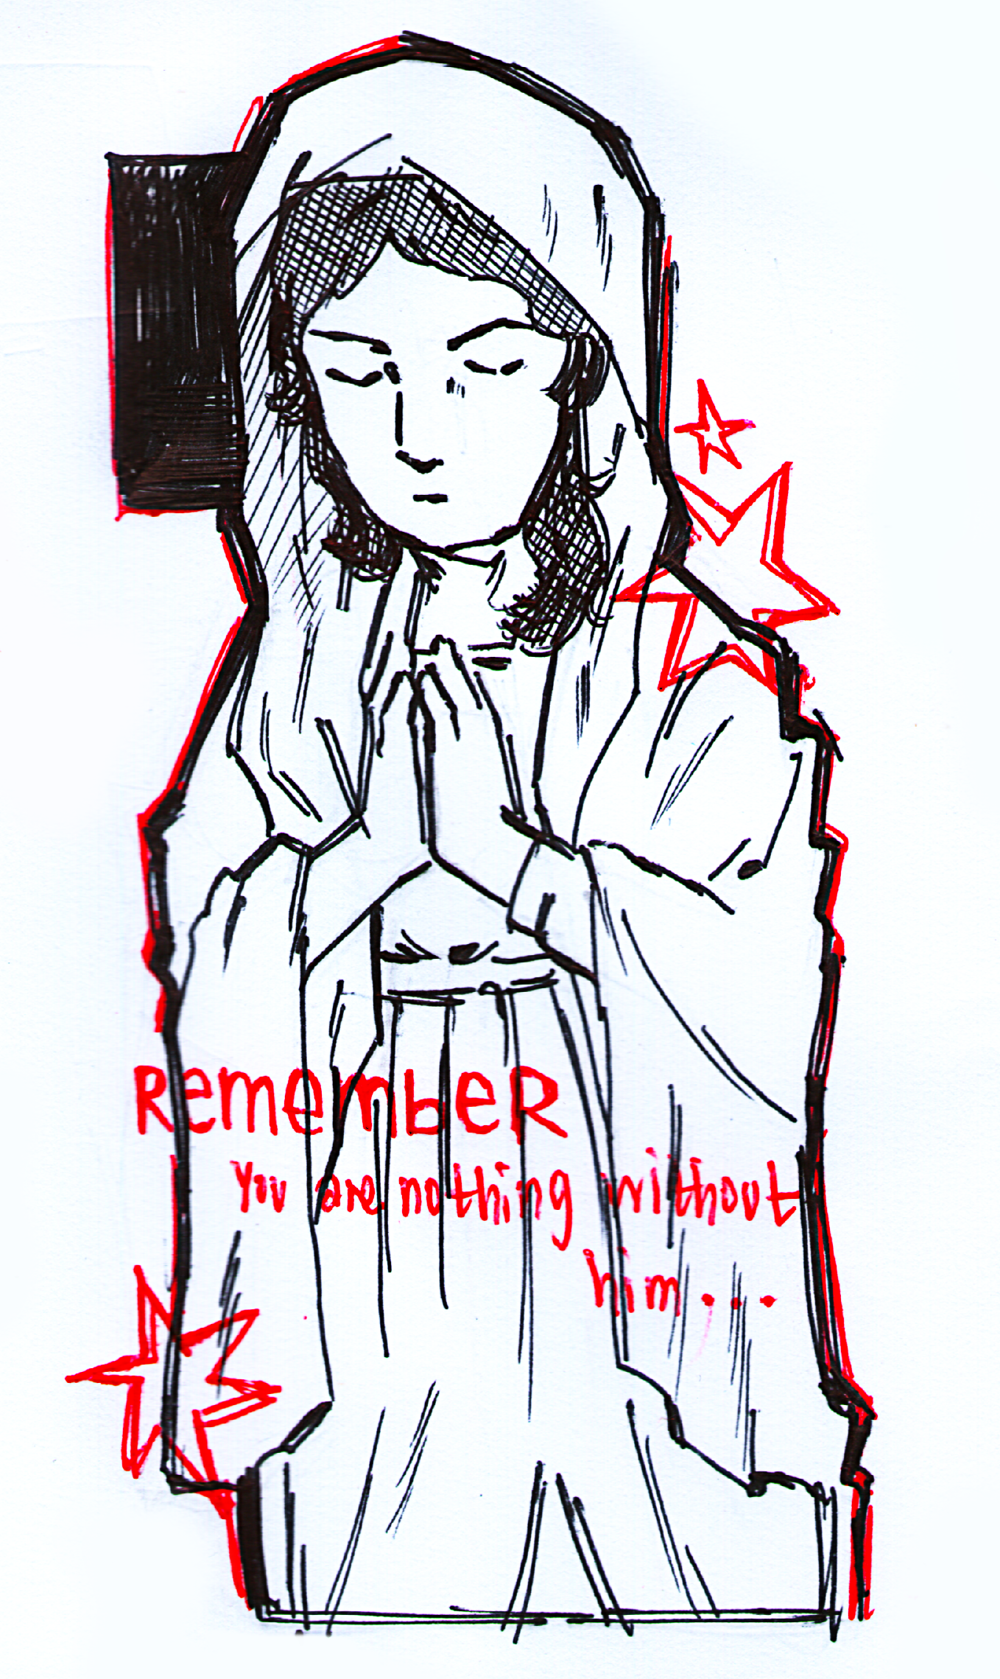 RemembeR
You are nothing without
him...